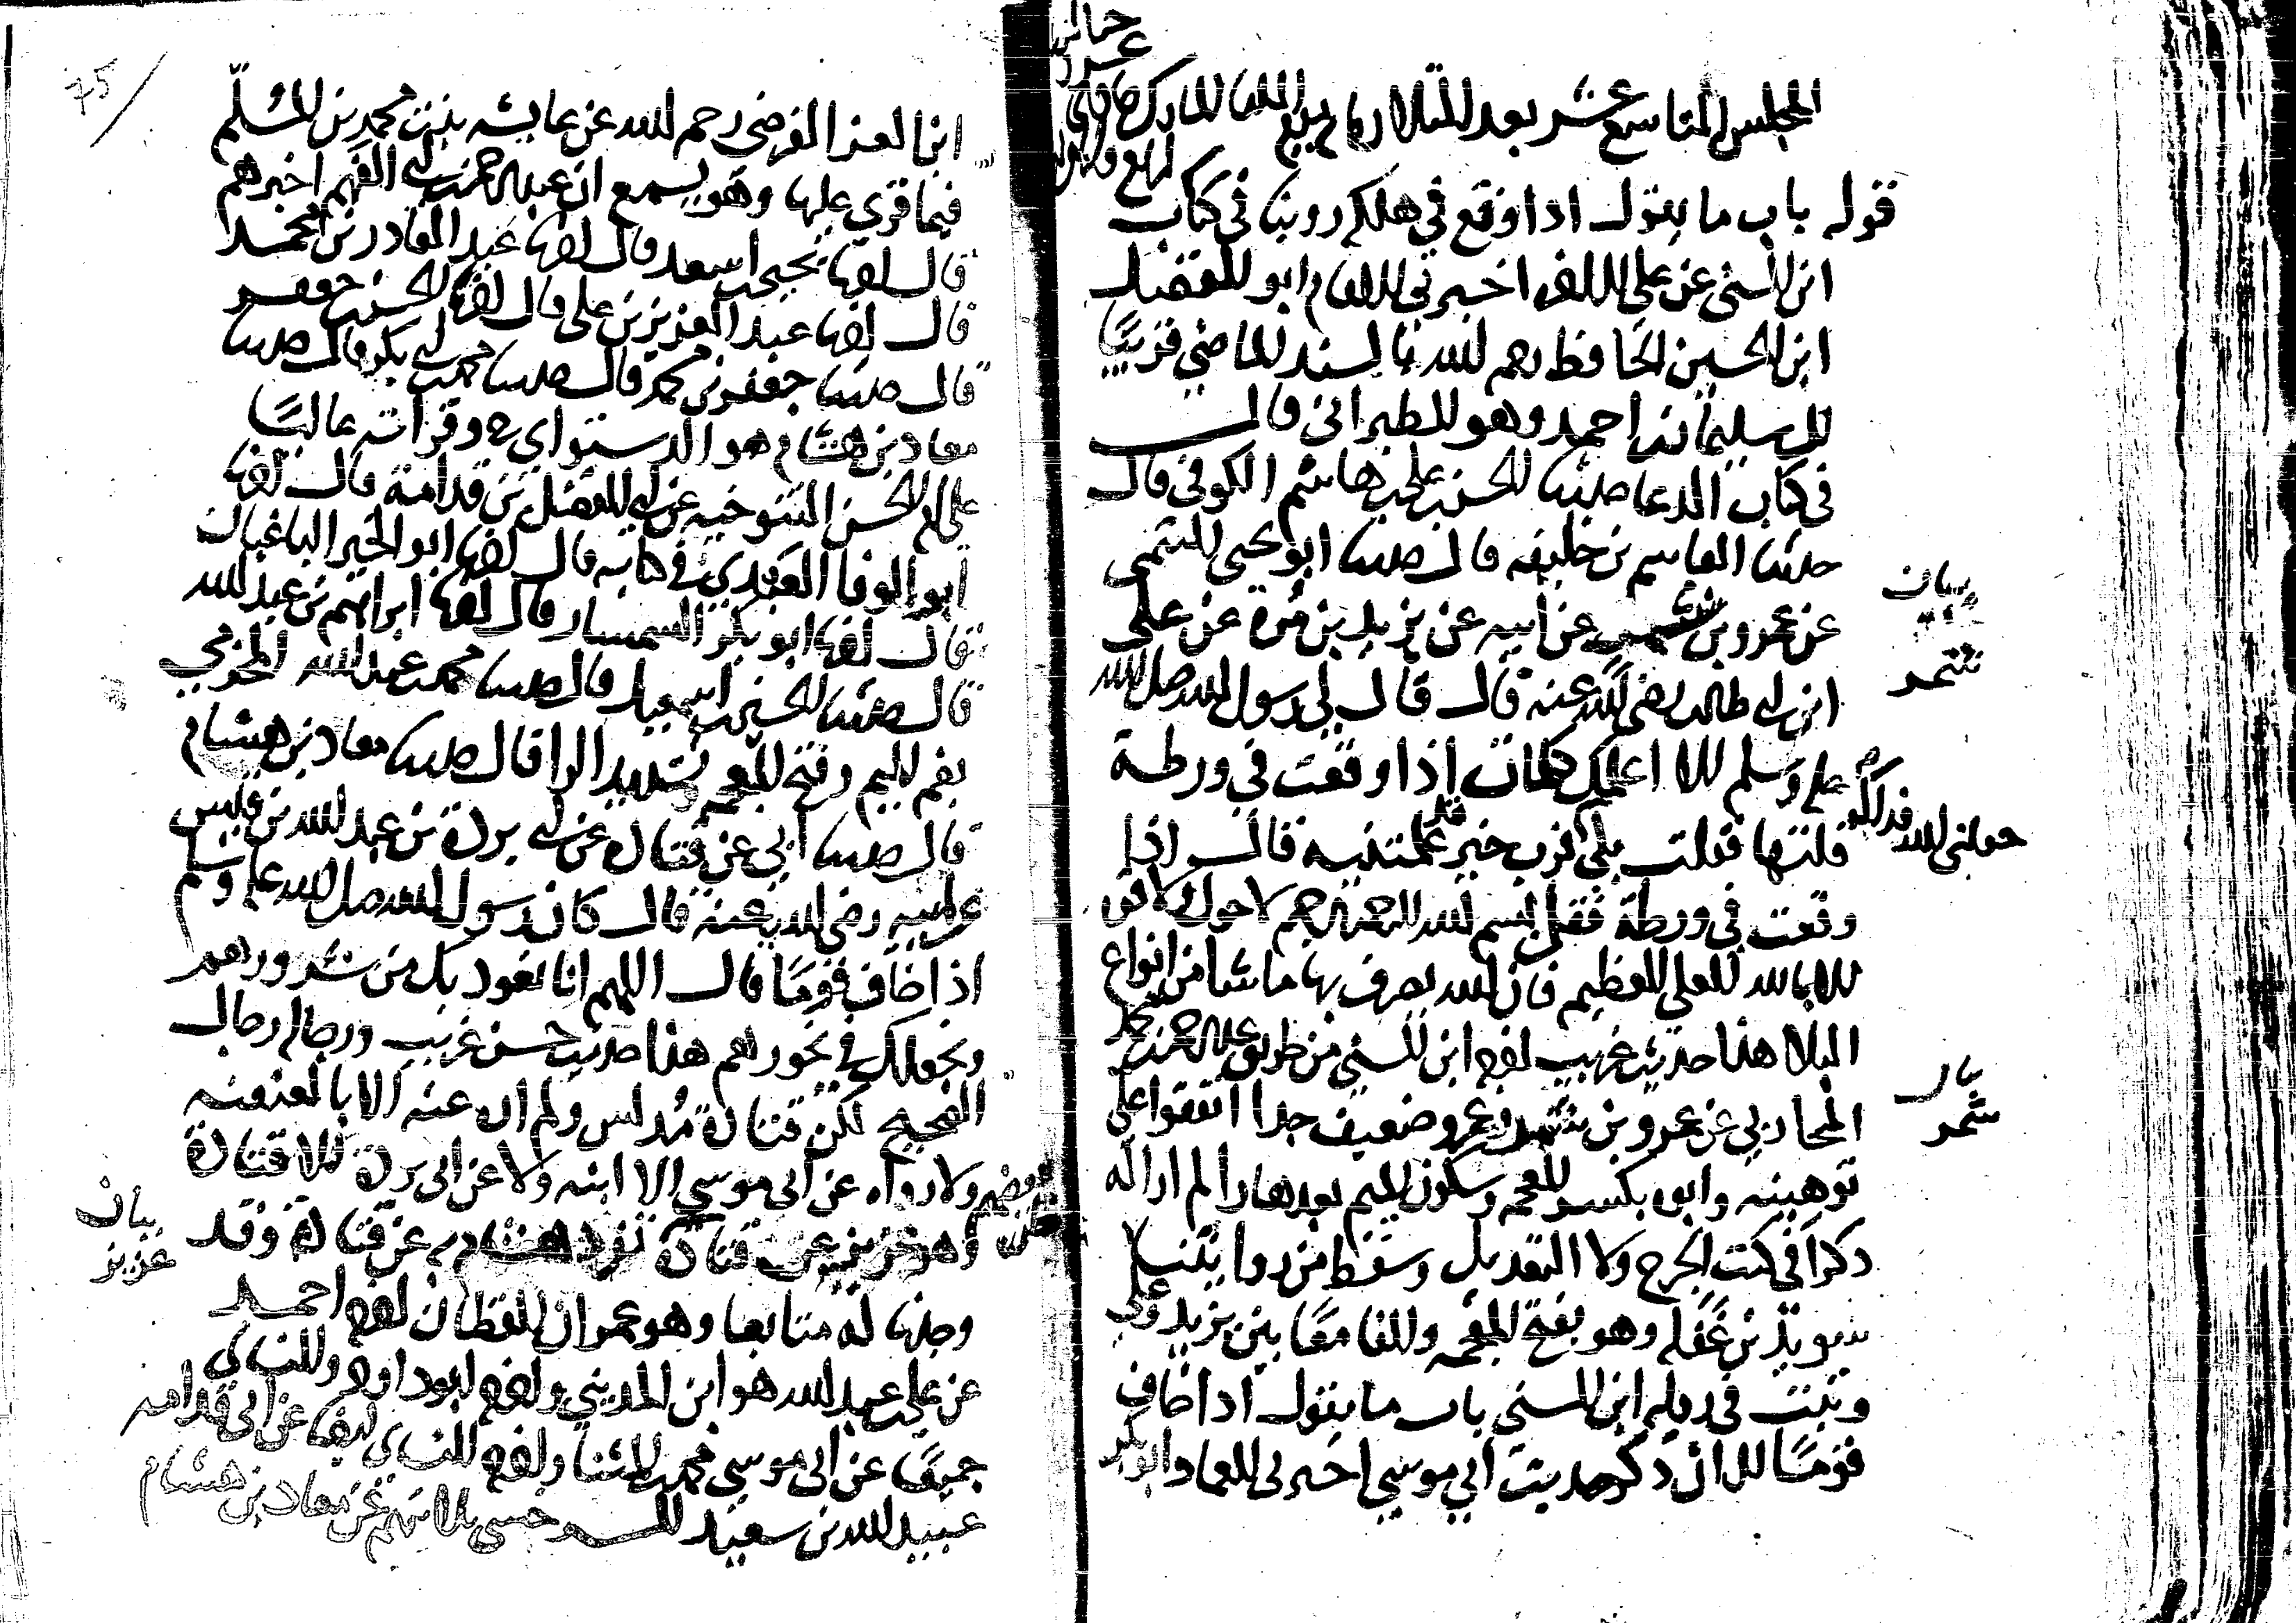 المجلس التاسع عشر بعد الثلاثمائة
قوله باب ما يقول اذا وقع في هلكة روينا في كتاب
ابن السني عن علي اخبرني الامام ابو الفضل
ابن الحسين الحافظ رحمه الله بالسند الماضي قريبًا
الى سليمان بن احمد وهو الطبراني قال
في كتاب الدعا حدثنا الحسن بن علي بن هاشم الكوفي قال
حدثنا القاسم بن خليفه قال حدثنا ابو يحيى التيمي
عن عمرو بن شمر عن ابيه عن يزيد بن مرة عن علي
ابن ابي طالب رضي الله عنه قال قال لي رسول الله صلى الله
عليه وسلم الا اعلمك كلمات اذا وقعت في ورطة
قلتها فقلت بلى جعلني الله فداك كم من خير قد علمتنيه قال اذا
وقعت في ورطة فقل بسم الله الرحمن الرحيم لا حول ولا قوة
الا بالله العلي العظيم فان الله يصرف بها ما شا من انواع
البلا هذا حديث غريب اخرجه ابن السني من طريق عبد الرحمن بن محمد
المحاربي عن عمرو بن شمر وعمرو ضعيف جدا اتفقوا على
توهينه وابوه بكسر المعجمه وسكون الميم بعدها را لم ار له
ذكرا في كتب الجرح ولا التعديل وسقط من روايتنا
سويد بن غفله وهو بفتح المعجمه والفا معًا بين يزيد وعلي
وثبت في رواية ابن السني باب ما يقول اذا خاف
قومًا الى ان ذكر حديث ابي موسى اخبرني العماد ابو بكر
بيان
شمر
بيان
شمر
75
ابن العز الفرضي رحمه الله عن عايشه بنت محمد بن المسلم
فيما قري عليها وهو يسمع ان عبد الرحمن بن ابي الفهم اخبرهم
قال اخبرنا يحيى بن اسعد قال اخبرنا عبد القادر بن محمد
قال اخبرنا عبد العزيز بن علي قال اخبرنا الحسن بن جعفر
قال حدثنا جعفر بن محمد قال حدثنا محمد بن ابي بكر قال حدثنا
معاذ بن هشام هو الدستواي ح وقراته عاليًا
على ام الحسن التنوخيه عن ابي الفضل بن قدامة قال اخبرنا
ابو الوفا العبدي في كتابه قال اخبرنا ابو الخير الباغبان
قال اخبرنا ابو بكر السمسار قال اخبرنا ابراهيم بن عبد الله
قال حدثنا الحسين بن اسمعيل قال حدثنا محمد بن عبد الله المخرمي
بضم الميم وفتح المعجمه وتشديد الرا قال حدثنا معاذ بن هشام
قال حدثنا ابي عن قتادة عن ابي بردة بن عبد الله بن قيس
عن ابيه رضي الله عنه قال كان رسول الله صلى الله عليه وسلم
اذا خاف قومًا قال اللهم انا نعوذ بك من شرورهم
ونجعلك في نحورهم هذا حديث حسن غريب ورجاله رجال
الصحيح لكن قتادة مُدلس ولم اره عنه الا بالعنعنه
ولا رواه عن ابي موسى الا ابنه ولا عن ابي بردة الا قتادة
وهو عزيز عن قتادة تفرد به هشام عن قتادة وقد
وجدنا له متابعا وهو عمران القطان اخرجه احمد
عن علي بن عبد الله هو ابن المديني واخرجه ابو داود والنساي
جميعًا عن ابي موسى محمد بن المثنا واخرجه النساي ايضًا عن ابي قدامه
عبيد الله بن سعيد السرخسي ثلاثتهم عن معاذ بن هشام
بيان
عزيز